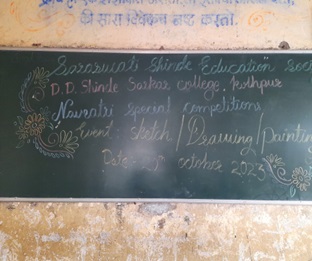 की सारा विवेकच नष्ट करतो.
Saraswati Shinde Education Soci
D.D. Shinde Sarkar college, kolhpur
Navratri special competitions
Event : Sketch / Drawing / painting
Date : october 2023